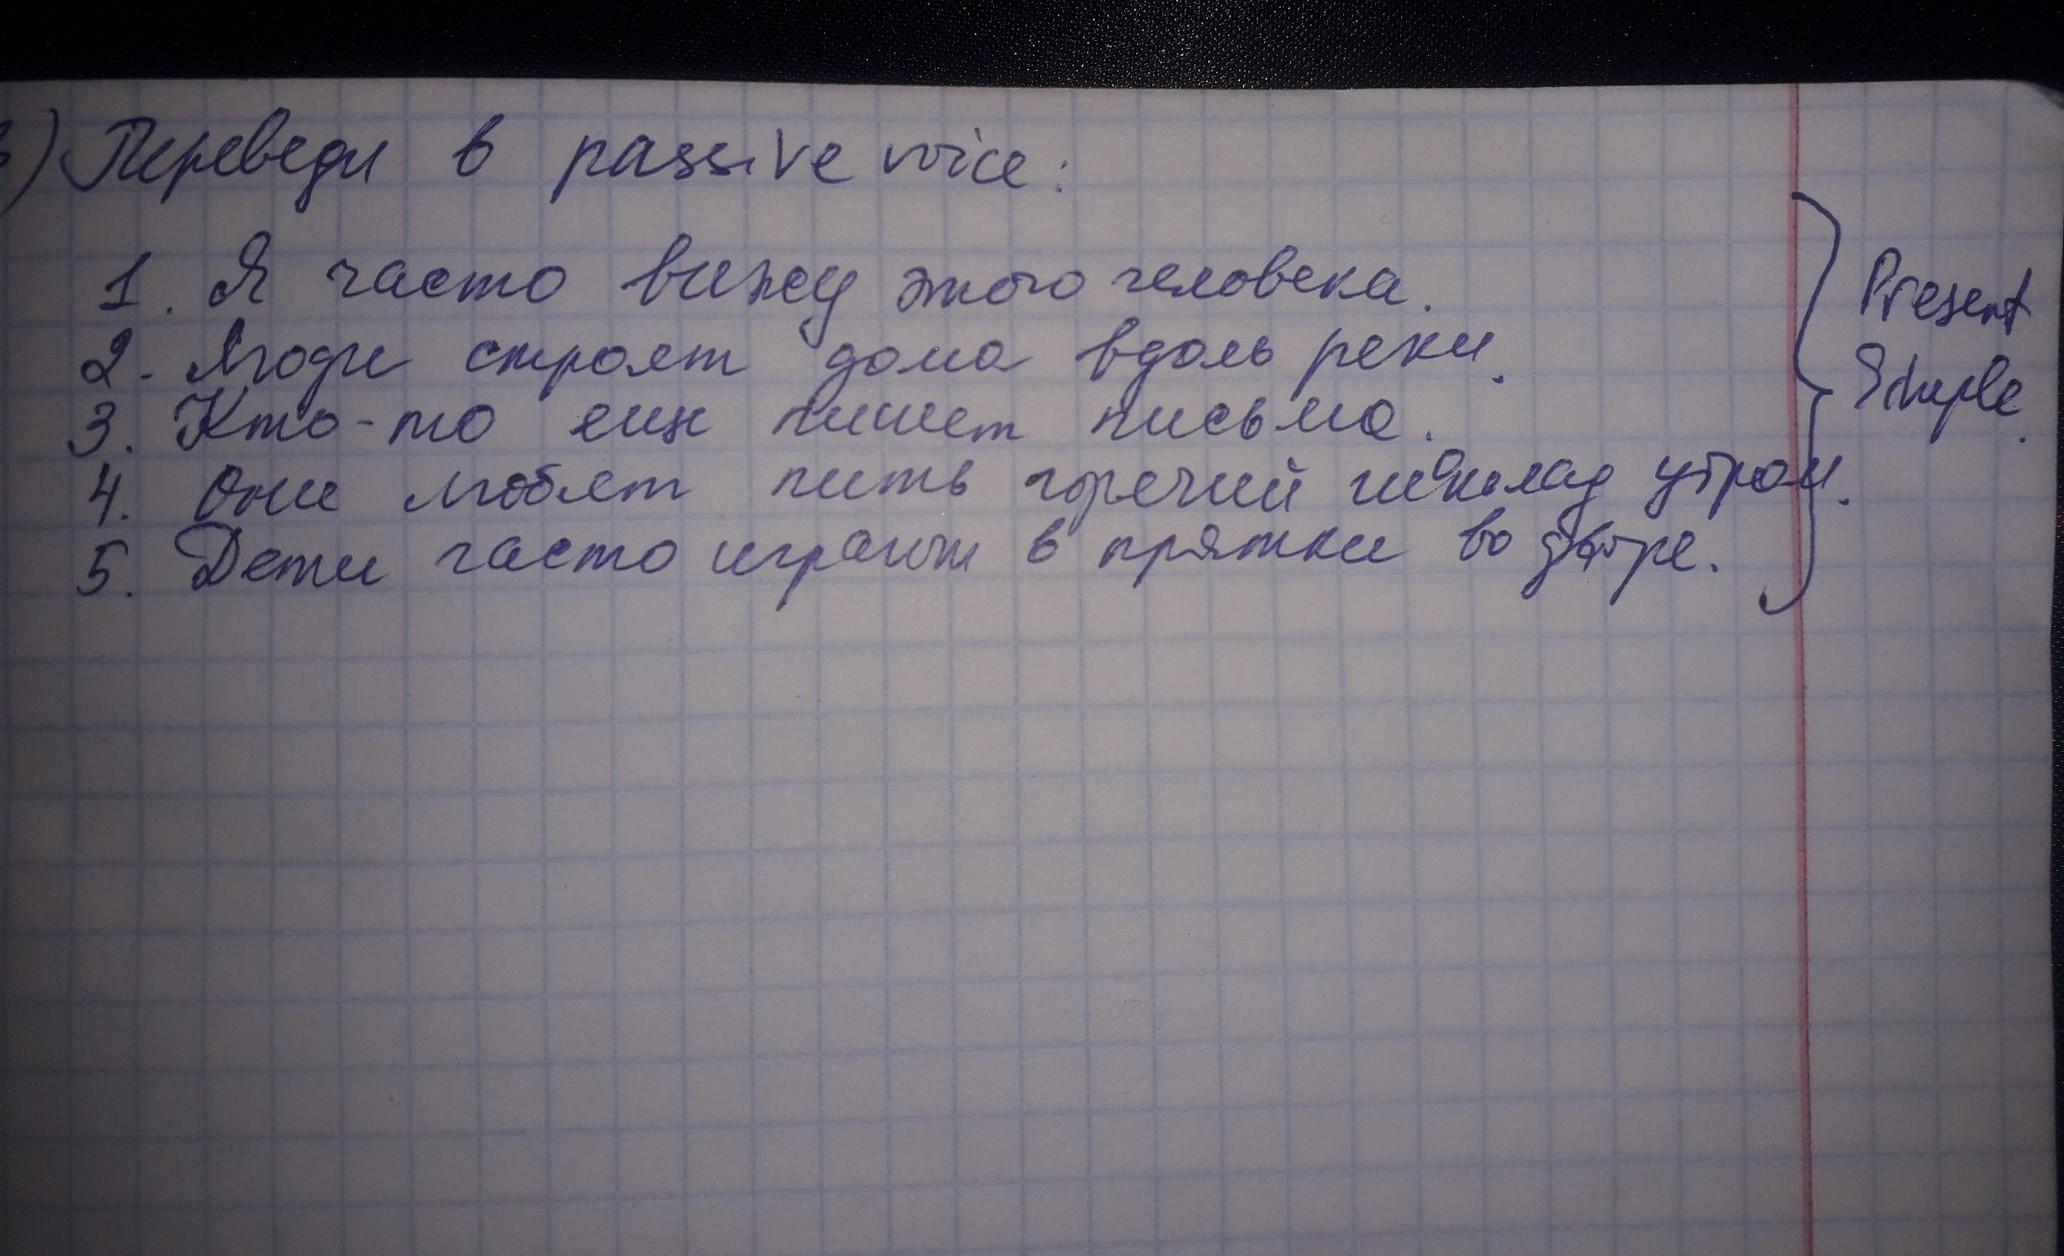 3) Переведи в passive voice:
1. Я часто вижу этого человека.
2. Люди строят дома вдоль реки.
3. Кто-то ещё пишет письма.
4. Они любят пить горячий шоколад утром.
5. Дети часто играют в прятки во дворе.
Present
Simple.